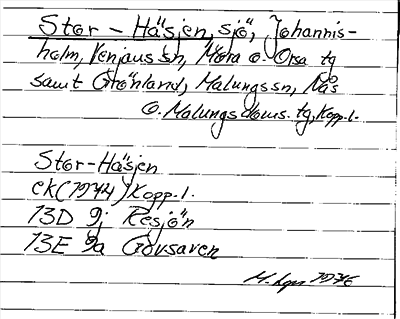 Stor-Häsjen, sjö, Johannis-
holm, Venjans sn, Mora o. Orsa tg
samt Grönland, Malungs sn, Nås
o. Malungs doms. tg, Kopp. l.
Stor-Häsjen
ek (1974) Kopp. l.
13D 9j Resjön
13E 9a Govsaven
1976